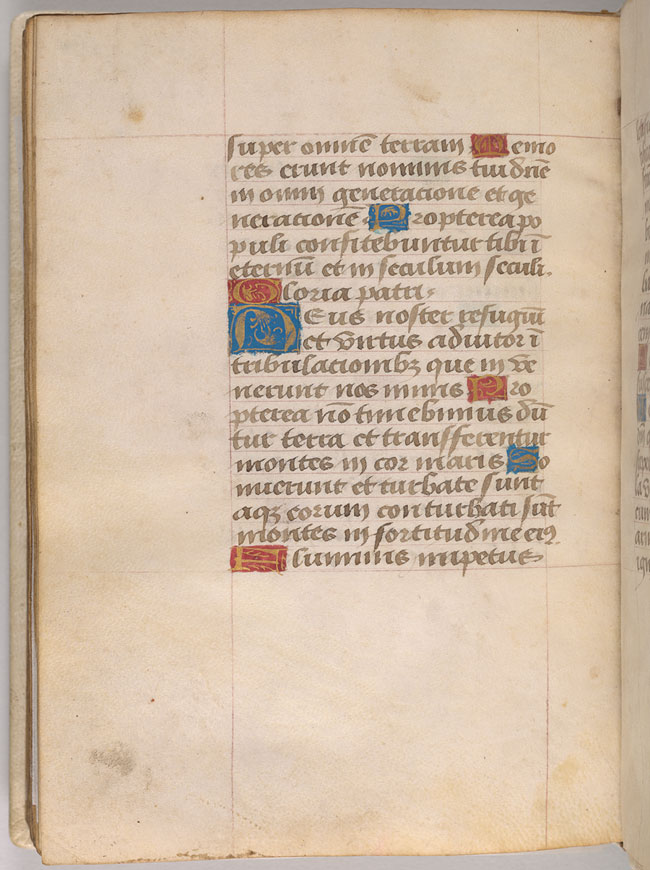 super omnē terram Memo
res erunt nominis tui dn̄e
in omni generatione et ge
nerationē. Propterea po
puli confitebuntur tibi ī
eternū et in seculum seculi.
Gloria patri.
Deus noster refugiū
et virtus adiutor ī
tribulationibꝫ que inve
nerunt nos nimis Pro
pterea nō timebimus dū
tur terra et transfferentur
montes in cor maris So
nuerunt et turbate sunt
aqꝫ eorum conturbati sūt
montes in fortitudine eiꝰ
Fluminis impetus